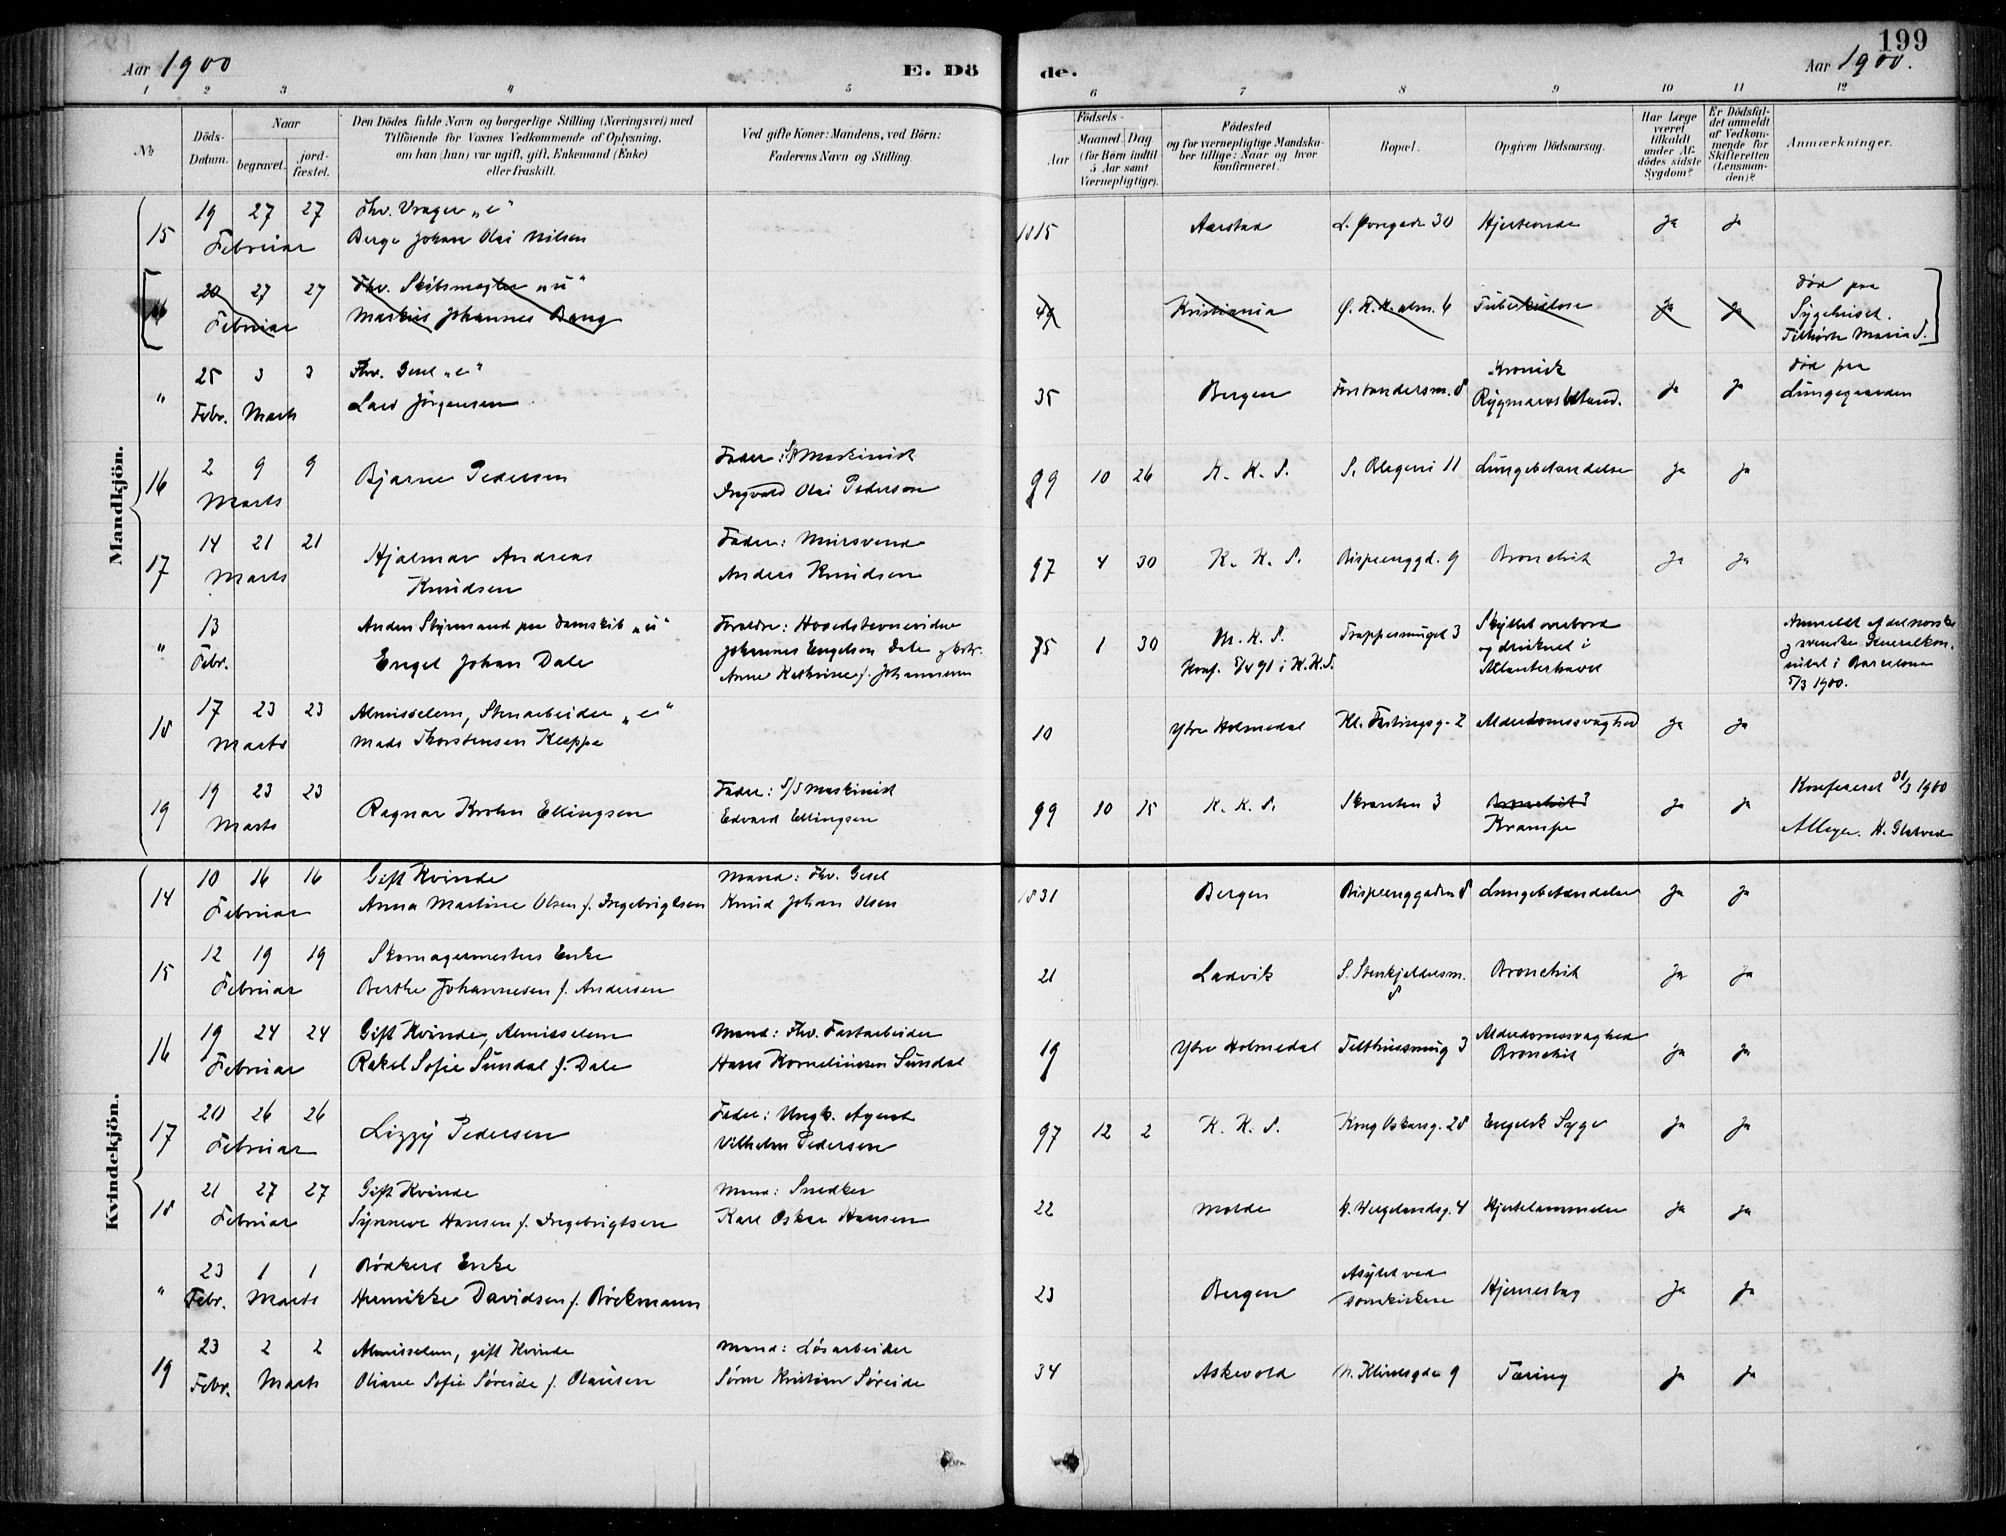 199
Aar 1900
E. Dö
de.
Aar 1900.
1 2 3 4 5 6 7 8 9 10 11 12
No
Döds-Datum.
Naar
begravet.
jord-fæstet.
Den Dödes fulde Navn og borgerlige Stilling (Næringsvei) med
Tilföiende for Voxnes Vedkommende af Oplysning,
om han (hun) var ugift, gift, Enkemand (Enke)
eller fraskilt.
Ved gifte Koner: Mandens, ved Börn:
Faderens Navn og Stilling.
Födsels-
Aar
Maaned. Dag.
(for Börn indtil
5 Aar samt
Værnepligtige).
Födested
og for værnepligtige Mandska-
ber tillige: Naar og hvor
konfirmeret.
Bopæl.
Opgiven Dödsaarsag.
Har Læge
været
tilkaldt
under Af-
dödes sidste
Sygdom?
Er Dödsfal-
det anmeldt
af Vedkom-
mende for
Skifteretten
(Lensman-
den)?
Anmærkninger.
Mandkjön.
15 19 27 27 Fhv. Vrager „e" 1815 Aarstad L. Øvregade 30 Hjerteonde Ja Ja
Februar Berge Johan Olai Nilsen
16 20 27 27 Fhv. Skibsmægler „u" 44 Kristiania Tuberkulose Ja Ja Død paa
Februar Markus Johannes Bang Sygehuset.
Tilhører Maria S.
" 25 3 3 Fhv. Gesel „e" 35 Bergen Forstandersm. 8 Kronisk Ja Ja Død paa
Febr. Marts Lars Jörgensen Rygmarvsbetænd. Lungegaarden
16 2 9 9 Bjarne Pedersen Fader: S/S Maskinist 99 10 26 K. K. S. S. Blegevei 11 Lungebetændelse Ja Ja
Marts Ingvald Olai Pedersen
17 14 21 21 Hjalmar Andreas Fader: Mursvend 97 4 30 K. K. S. Bispenggd. 9 Bronchit Ja Ja
Marts Knudsen Anders Knudsen
" 13 Anden Styrmand paa Damskib „u" Forældre: Hovedstevnevidne 75 1 30 M. K. S. Trappesmuget 3 Skyllet overbord Anmeldt af det norske
Febr. Engel Johan Dale Johannes Engelsen Dale Konf. 5/4 91 i K.K.S. og druknet i og svenske Generalkon-
Anne Kathrine f. Johannesen Atlanterhavet sulat i Barcelona
5/3 1900.
18 17 23 23 Almisselem, Stenarbeider „e" 10 Ytre Holmedal Kl. Fortingsg. 2 Alderdomssvaghed Ja Ja
Marts Mads Thorstensen Kleppe
19 19 23 23 Ragnar Krohn Ellingsen Fader: S/S Maskinist 99 10 15 K. K. S. Skranten 3 Bronchit? Ja Ja Konfereret 31/3 1900
Marts Edvard Ellingsen Krampe
Kvindekjön.
14 10 16 16 Gift Kvinde Mand: Fhv. Gesel 1831 Bergen Bispenggaden 8 Lungebetændelse Ja Ja
Februar Anna Martine Olsen f. Ingebrigtsen Knud Johan Olsen
15 12 19 19 Skomagermesters Enke 21 Ladvik S. Stenkjeldersm. 8 Bronchit Ja Ja
Februar Berthe Johannesen f. Andersen
16 19 24 24 Gift Kvinde, Almisselem Mand: Fhv. Fastarbeider 19 Ytre Holmedal Telthussmug 3 Alderdomssvaghed Ja Ja
Februar Rakel Sofie Sundal f. Dale Hans Korneliussen Sundal Bronchit
17 20 26 26 Lizzy Pedersen Fader: Ungk. Agent 97 12 2 K. K. S. Kong Oskarsg. 28 Engelsk Syge Ja Ja
Februar Vilhelm Pedersen
18 21 27 27 Gift Kvinde Mand: Snedker 22 Molde H. Wergelandsg. 4 Hjertelammelse Ja Ja
Februar Synneve Hansen f. Ingebrigtsen Karl Oskar Hansen
" 23 1 1 Bødkers Enke 23 Bergen Asylet ved Hjerneslag Ja Ja
Febr. Marts Henrikke Davidsen f. Böckmann Domkirken
19 23 2 2 Almisselem, gift Kvinde Mand: Løsarbeider 34 Askevold N. Klinesgden 9 Tæring Ja Ja
Febr. Marts Oliane Sofie Søreide f. Olausen Søren Kristian Søreide